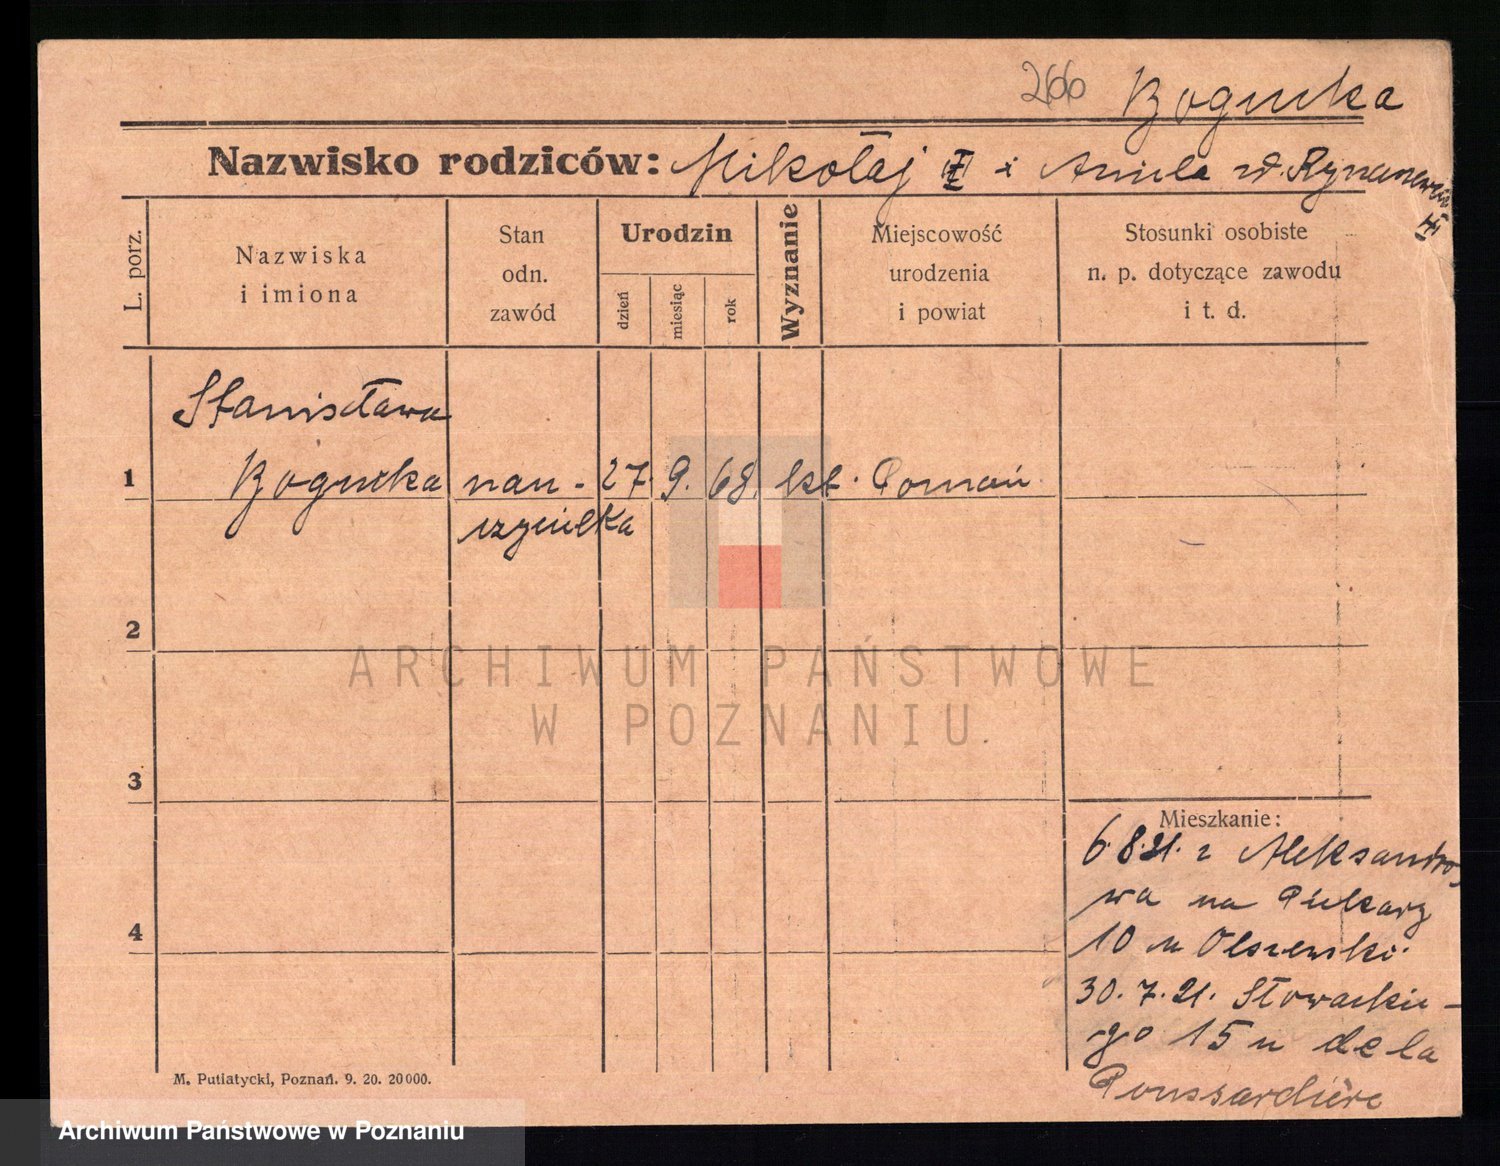 266 Bogucka
Nazwisko rodziców: Mikołaj i Aniela
L. porz.
Nazwiska
i imiona
Stan
odn.
zawód
Urodzin
dzień
miesiąc
rok
Wyznanie
Miejscowość
urodzenia
i powiat
Stosunki osobiste
n. p. dotyczące zawodu
i t. d.
Stanisława
1 Bogucka nau- 27. 9. 68. kt. Poznań
czycielka
2
3
4
Mieszkanie:
6.8.21. z Aleksandro
wa na Piekary
10 u Olszewski.
30.7.21. Słowackie-
go 15 u de la
Poussardière
M. Putiatycki, Poznań. 9. 20. 20000.
ARCHIWUM PAŃSTWOWE
W POZNANIU
Archiwum Państwowe w Poznaniu